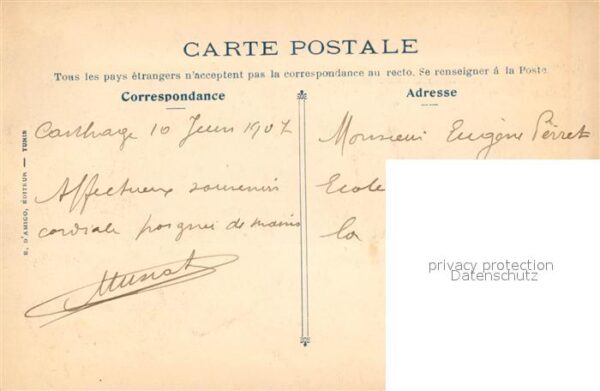 CARTE POSTALE
Tous les pays étrangers n'acceptent pas la correspondance au recto. Se renseigner á la Poste.
Correspondance
Carthage 10 Juin 1907
Affectueux souvenirs
cordiale poignée de mains
Adresse
Monsieur Eugène Perret
Ecole
la
R. D'AMICO, ÉDITEUR — TUNIS
privacy protection
Datenschutz